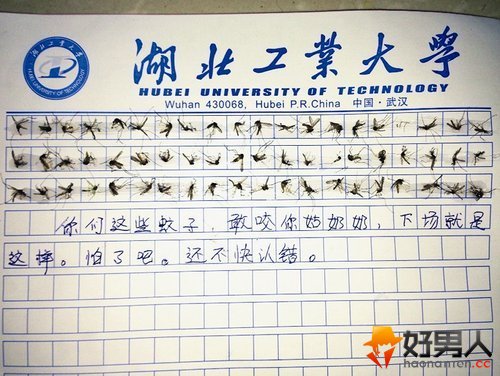 湖北工業大學
HUBEI UNIVERSITY OF TECHNOLOGY
Wuhan 430068, Hubei P.R.China 中国·武汉
你们这些蚊子，敢咬你姑奶奶，下场就是
这样。怕了吧。还不快认错。
好男人
haonanren.cc